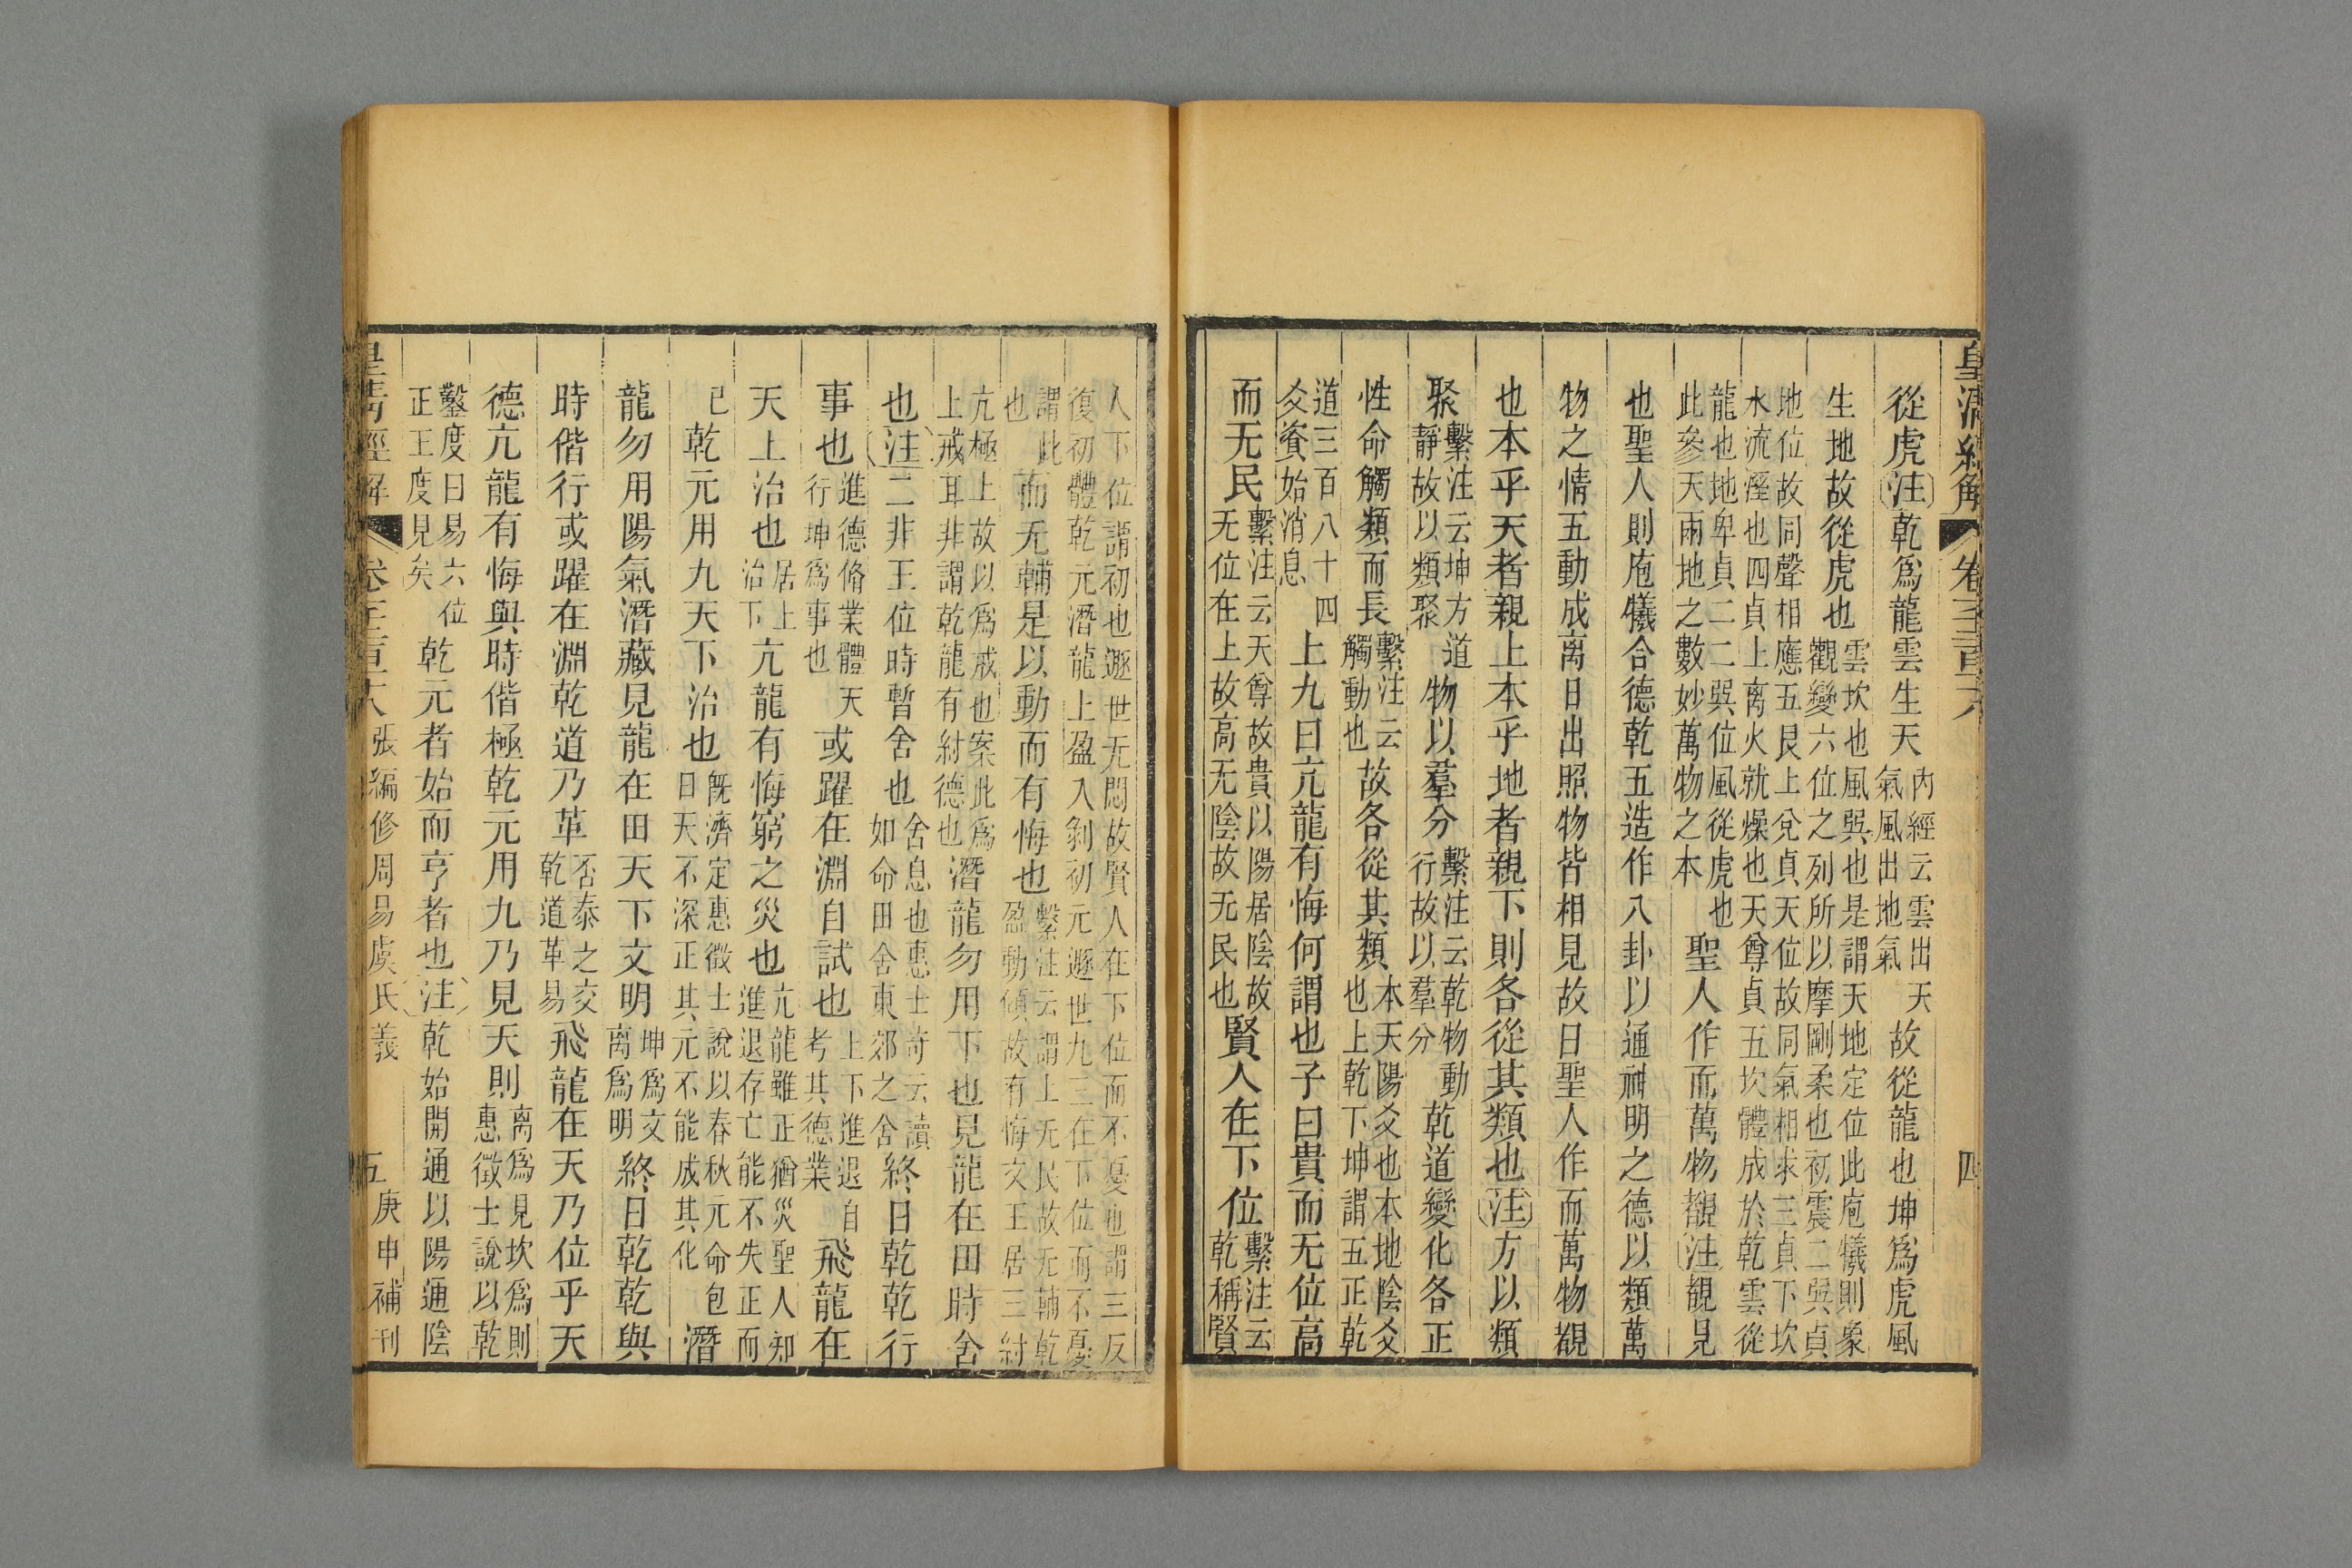 皇清經解 卷 四
從虎注乾爲龍雲生天內經云雲出天氣風出地氣故從龍也坤爲虎風
生地故從虎也雲坎也風巽也是謂天地定位此庖犧則象觀變六位之列所以摩剛柔也初震二巽貞
地位故同聲相應五艮上兌貞天位故同氣相求三貞下坎水流溼也四貞上离火就燥也天尊貞五坎體成於乾雲從
龍也地卑貞二二巽位風從虎也此參天兩地之數妙萬物之本聖人作而萬物覩注覩見
也聖人則庖犧合德乾五造作八卦以通神明之德以類萬
物之情五動成离日出照物皆相見故曰聖人作而萬物覩
也本乎天者親上本乎地者親下則各從其類也注方以類
聚繫注云坤方道靜故以類聚物以羣分繫注云乾物動行故以羣分乾道變化各正
性命觸類而長繫注云觸動也故各從其類本天陽爻也本地陰爻也上乾下坤謂五正乾
道三百八十四爻資始消息上九曰亢龍有悔何謂也子曰貴而无位高
而无民繫注云天尊故貴以陽居陰故无位在上故高无陰故无民也賢人在下位繫注云乾稱賢
人下位謂初也遯世无悶故賢人在下位而不憂也謂三反復初體乾元潛龍上盈入剝初元遯世九三在下位而不憂
謂此也而无輔是以動而有悔也繫注云謂上无民故无輔乾盈動傾故有悔文王居三紂
亢極上故以爲戒也案此爲上戒耳非謂乾龍有紂德也潛龍勿用下也見龍在田時舍
也注二非王位時暫舍也舍息也惠士奇云讀如命田舍東郊之舍終日乾乾行
事也進德脩業體天行坤爲事也或躍在淵自試也上下進退自考其德業飛龍在
天上治也居上治下亢龍有悔窮之災也亢龍雖正猶災聖人知進退存亡能不失正而
已乾元用九天下治也既濟定惠徵士說以春秋元命包曰天不深正其元不能成其化潛
龍勿用陽氣潛藏見龍在田天下文明坤爲文离爲明終日乾乾與
時偕行或躍在淵乾道乃革否泰之交乾道革易飛龍在天乃位乎天
德亢龍有悔與時偕極乾元用九乃見天則离爲見坎爲則惠徵士說以乾
鑿度曰易六位正王度見矣乾元者始而亨者也注乾始開通以陽通陰
皇清經解 卷 張編修周易虞氏義 五 庚申補刊